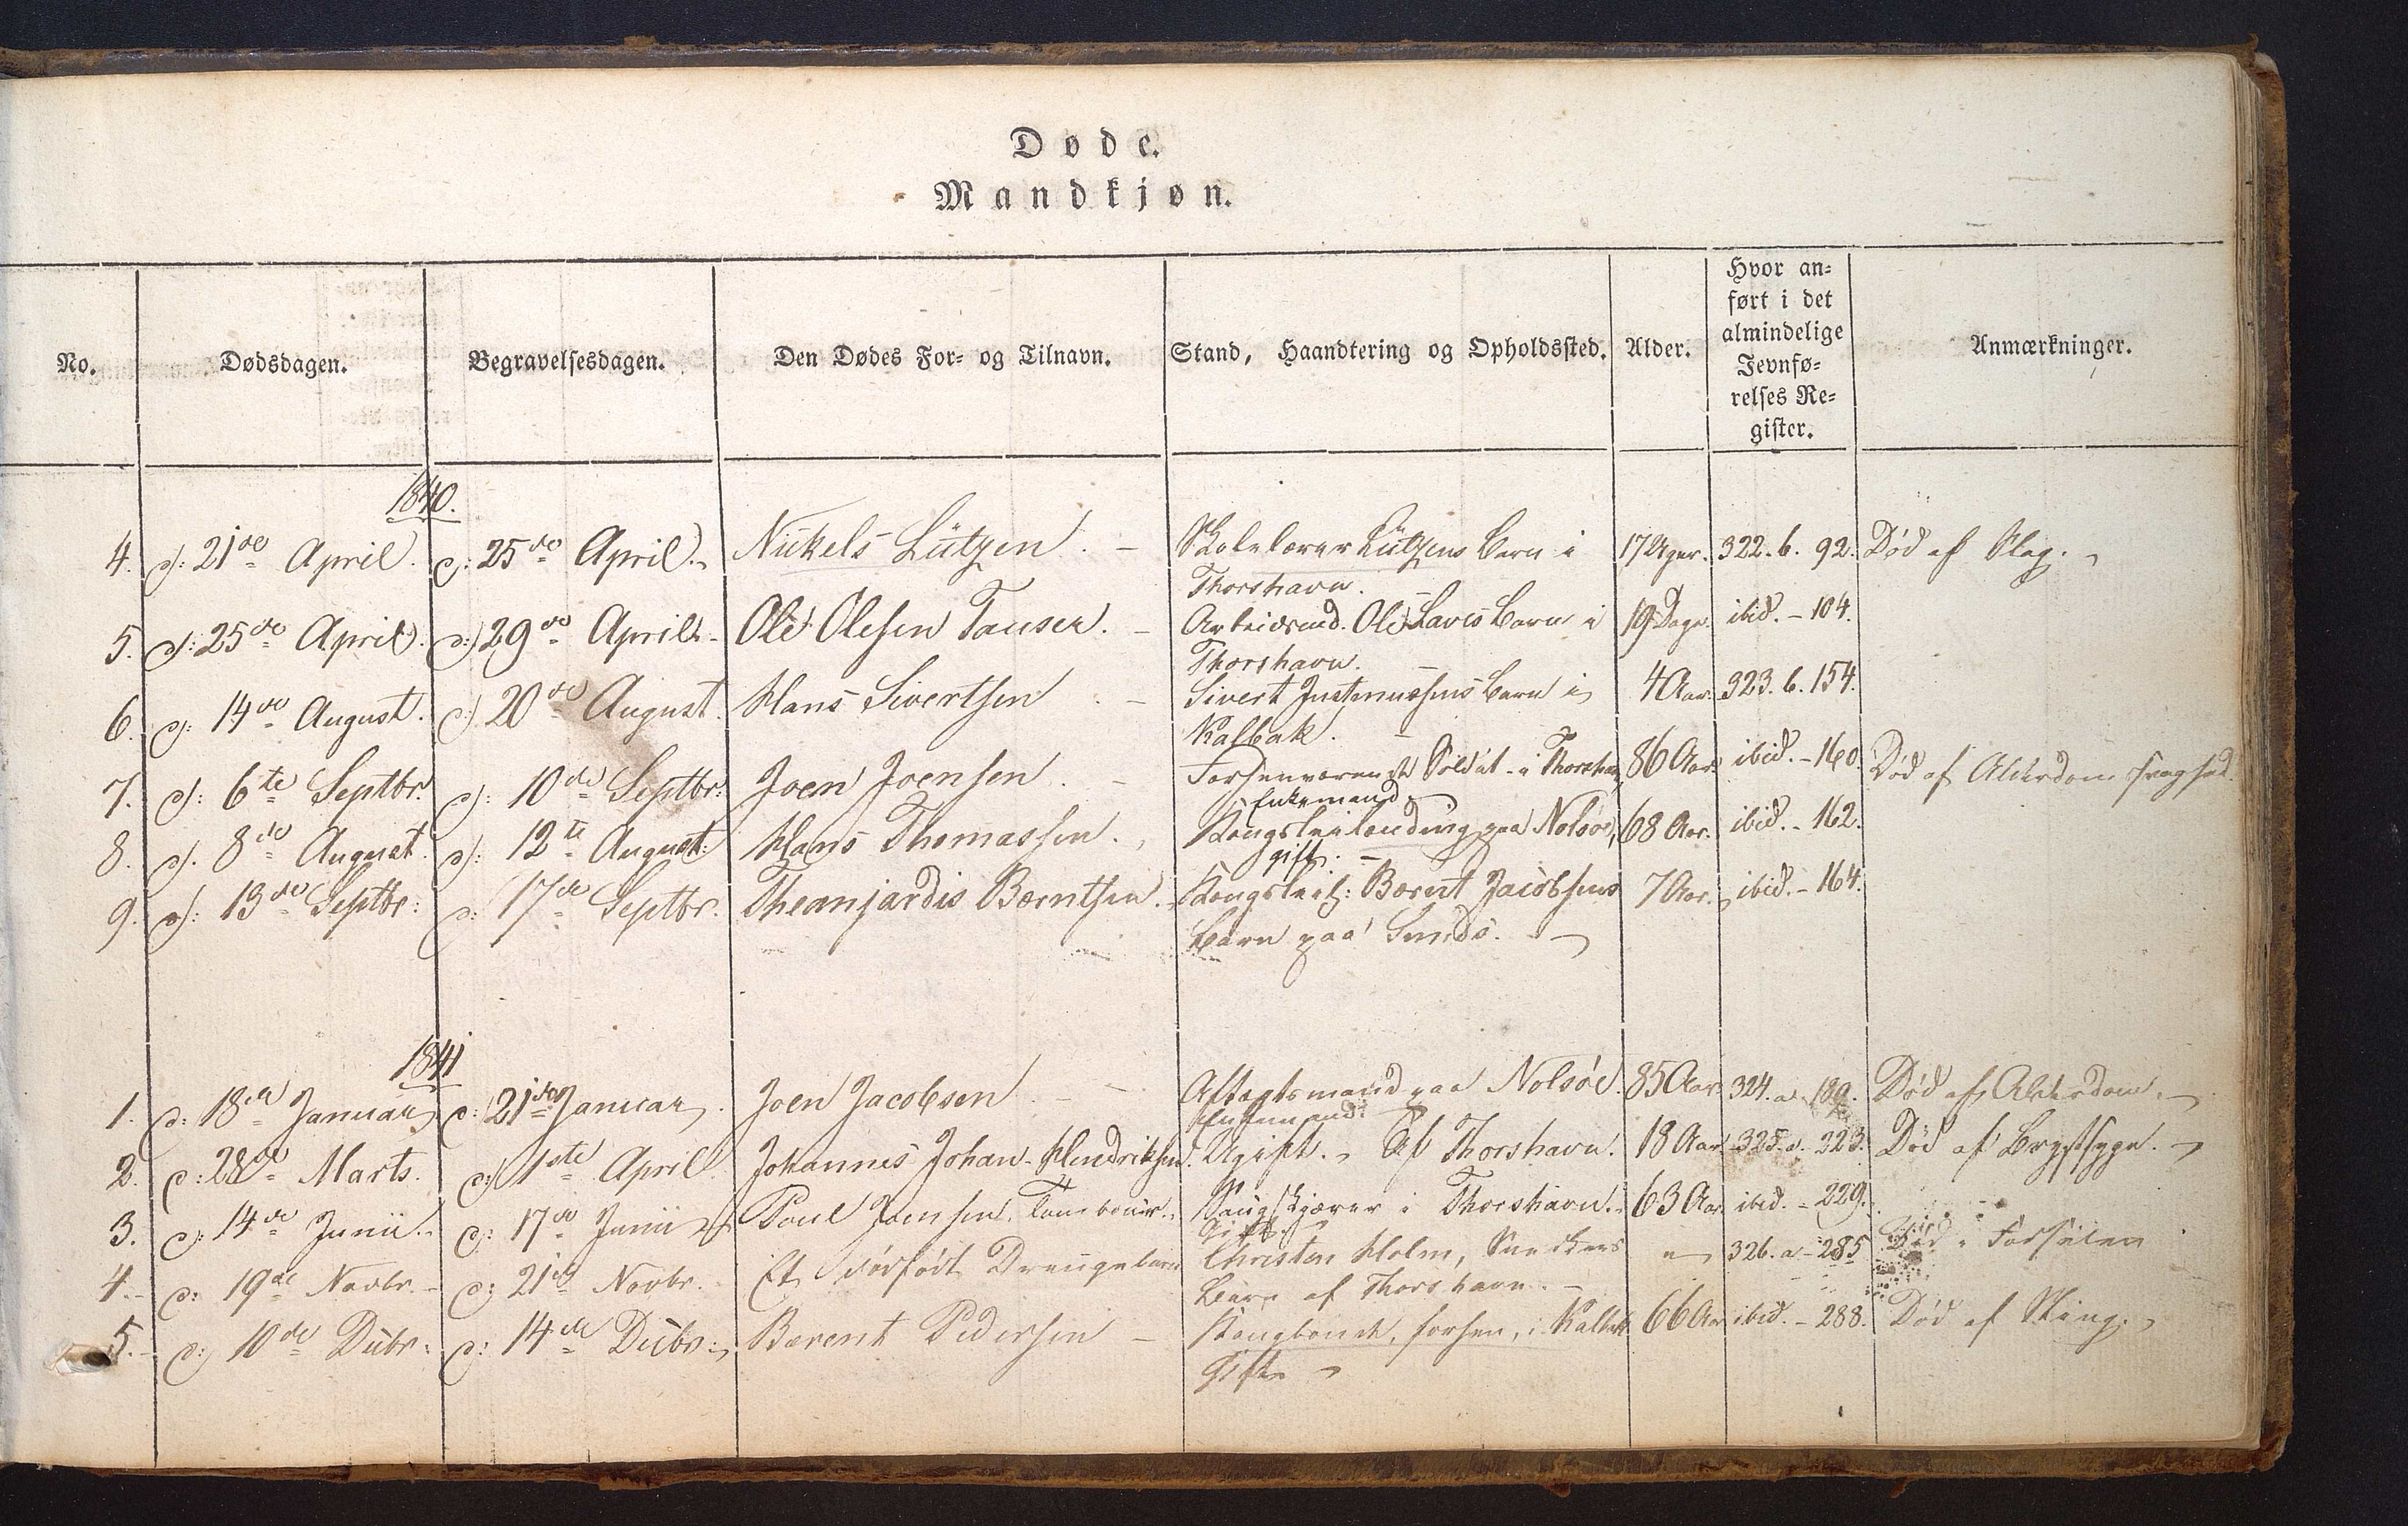 Døde.
Mandkjøn.
No. Dødsdagen. Begravelsesdagen. Den Dødes For- og Tilnavn. Stand, Haandtering og Opholdssted. Alder. Hvor an-
ført i det
almindelige
Jevnfø-
relses Re-
gister. Anmærkninger.
1840.
4. d: 21de April. d: 25de April. Nickels Lützen. – Skolelærer Lützens Barn i 17 Uger. 322. b. 92. Død af Slag.
Thorshavn.
5. d: 25de April. d: 29de April. – Ole Olesen Tauser. – Arbeidsmd. Ole Lavis Barn i 19 Dage ibid. – 104.
Thorshavn.
6. d: 14de August. d: 20de August. Hans Sivertsen – Sivert Justenussens Barn i 4 Aar. 323. b. 154.
Kalbak. –
7. d: 6te Septbr. d: 10de Septbr: Joen Joensen. – Forhenværende Soldat i Thorshavn, 86 Aar. ibid. – 160. Død af Alderdomssvaghed.
Enkemand
8. d. 8de August. d: 12te August: Hans Thomassen. Kongsleilending paa Nolsøe, 68 Aar. ibid. – 162.
gift. –
9. d: 13de Septbr: d: 17de Septbr. Berntsen. Kongsleil: Bærnt Jacobsens 7 Aar. ibid. – 164.
Barn paa Sundø.
1841
1. d: 18de Januar d: 21de Januar. Joen Jacobsen – Aftagtsmand paa Nolsøe. 85 Aar. 324. a. 189. Død af Alderdom.
Enkemand.
2. d: 28de Marts. d: 1ste April. Johannes Johan-Hendriksen. Ugift. Af Thorshavn. 18 Aar 325. a. 223. Død af Brystsyge.
3. d: 14de Junii. d: 17de Junii Poul Joensen. Tambouir. i Thorshavn. 63 Aar ibid. – 229.
Gift.
4. – d: 19de Novbr. – d: 21de Novbr. Et dødfødt Drengebarn Christen Holm, Snedkers " 326. a – 285 Død i Fødselen
Barn af Thorshavn. –
5. – d: 10de Decbr: d: 14de Decbr: Berent Pedersen – Kongbonde, forhen, i Kalbak 66 Aar ibid. – 288. Død af
Gift